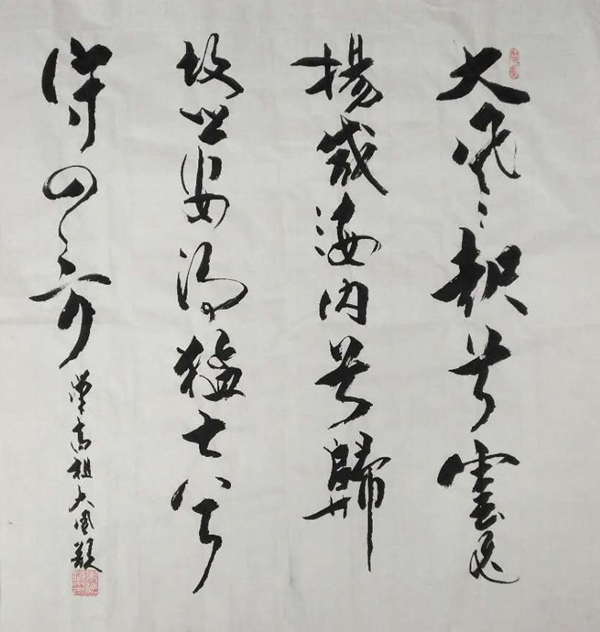 大風起兮雲飛
揚威海内兮歸
故鄉安得猛士兮
守四方
漢高祖大風歌